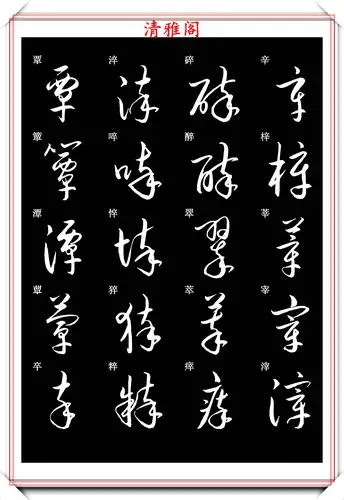 清雅阁
覃
覃
簟
簟
潭
潭
蕈
蕈
卒
卒
淬
淬
啐
啐
悴
悴
猝
猝
粹
粹
碎
碎
醉
醉
翠
翠
萃
萃
瘁
瘁
辛
辛
梓
梓
莘
莘
宰
宰
滓
滓